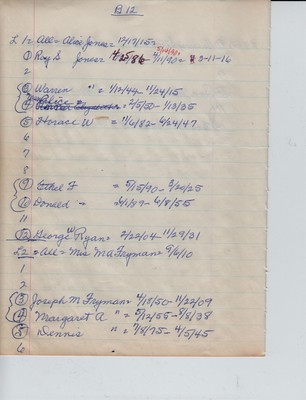 B 12
L 1 = All = Alice Jones = 12/17/15 =
① Roy S Jones = 4/25/86 11/90 = 3-11-16
③ Warren " = 1/12/44 - 11/24/15
④ = 2/5/50 - 1/13/35
⑤ Horace W = 11/6/82 - 6/24/47
⑨ Ethel F = 5/15/90 - 3/26/25
⑩ Donald = 2/1/87 - 6/8/55
11
12 George W Ryan = 2/22/04 - 11/29/31
L2 = All = Mrs M A Fryman = 9/6/10
1
2
③ Joseph M Fryman = 4/18/50 - 11/22/09
④ Margaret A " = 5/12/55 - 9/8/38
⑤ Dennis " = 7/8/75 - 4/5/45
6